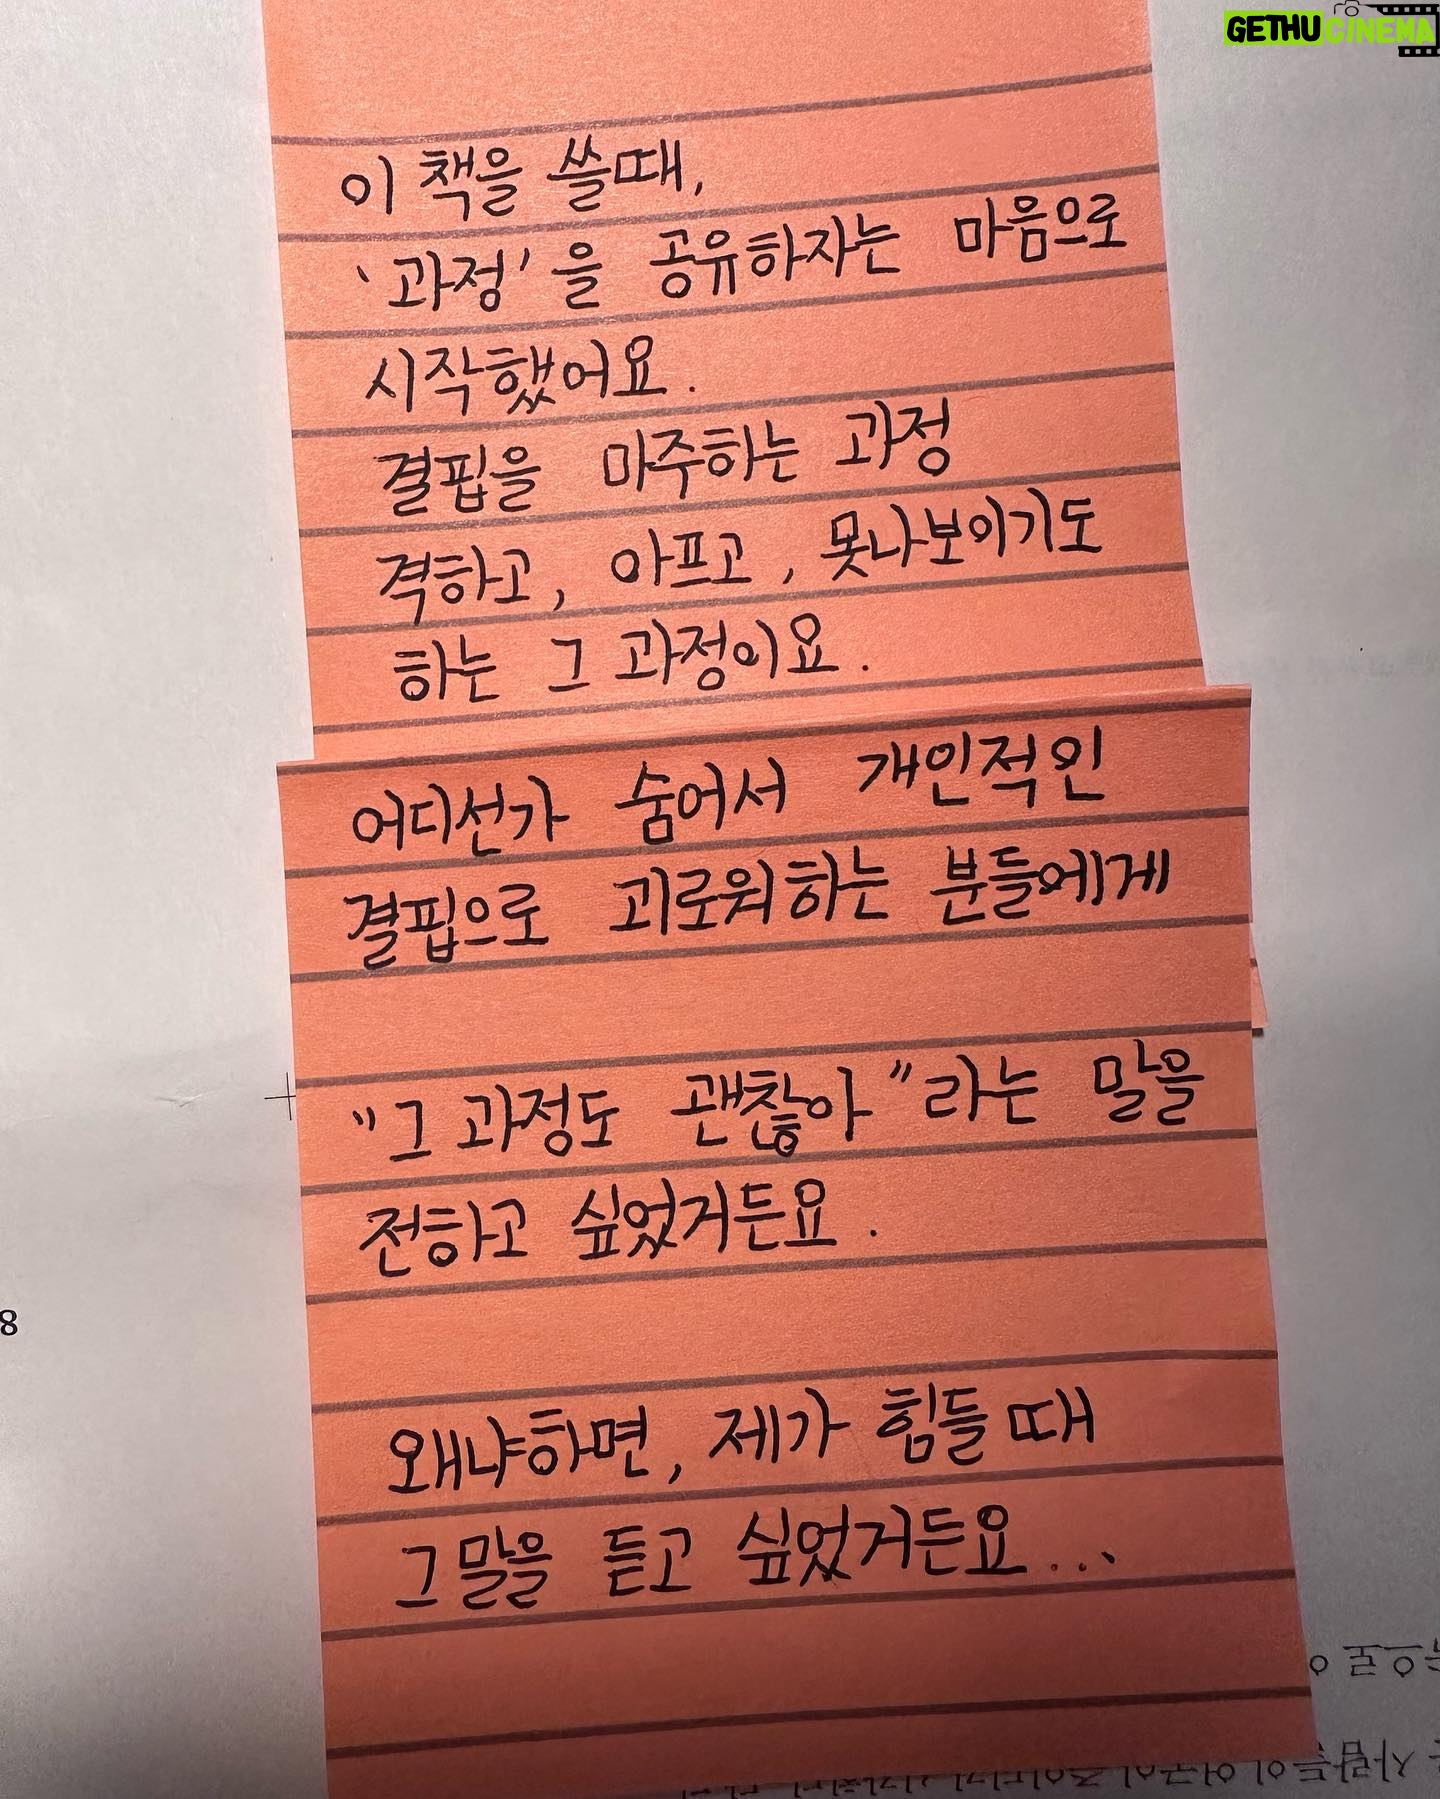 GETHUCINEMA
이 책을 쓸때,
'과정'을 공유하자는 마음으로
시작했어요.
결핍을 마주하는 과정
격하고, 아프고, 못나보이기도
하는 그 과정이요.
어디선가 숨어서 개인적인
결핍으로 괴로워하는 분들에게
"그 과정도 괜찮아"라는 말을
전하고 싶었거든요.
8
왜냐하면, 제가 힘들 때
그말을 듣고 싶었거든요...